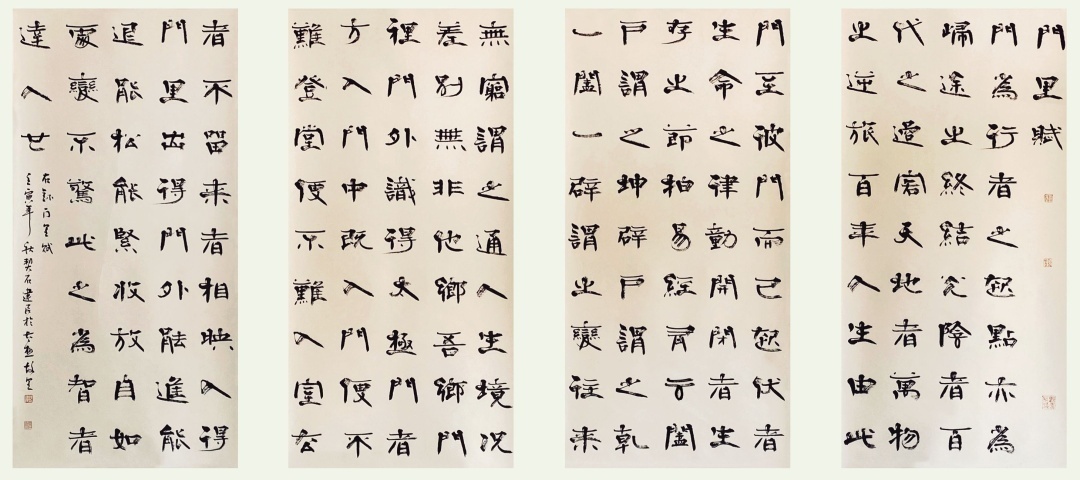 門里賦
門為行者之起點亦為
歸途之終結光陰者百
代之過客天地者萬物
之逆旅百年人生由此
門至彼門而已起伏者
生命之律動開閉者生
存之節拍易經有云闔
戶謂之坤辟戶謂之乾
一闔一辟謂之變往來
無窮謂之通人生境況
差別無非他鄉吾鄉門
裡門外識得太極門者
方入門中既入門便不
難登堂便不難入室去
者不留來者相映入得
門里出得門外能進能
退能松能緊收放自如
處變不驚此之為智者
達人也
右錄門里賦
壬寅年秋碧石建民於太極故里